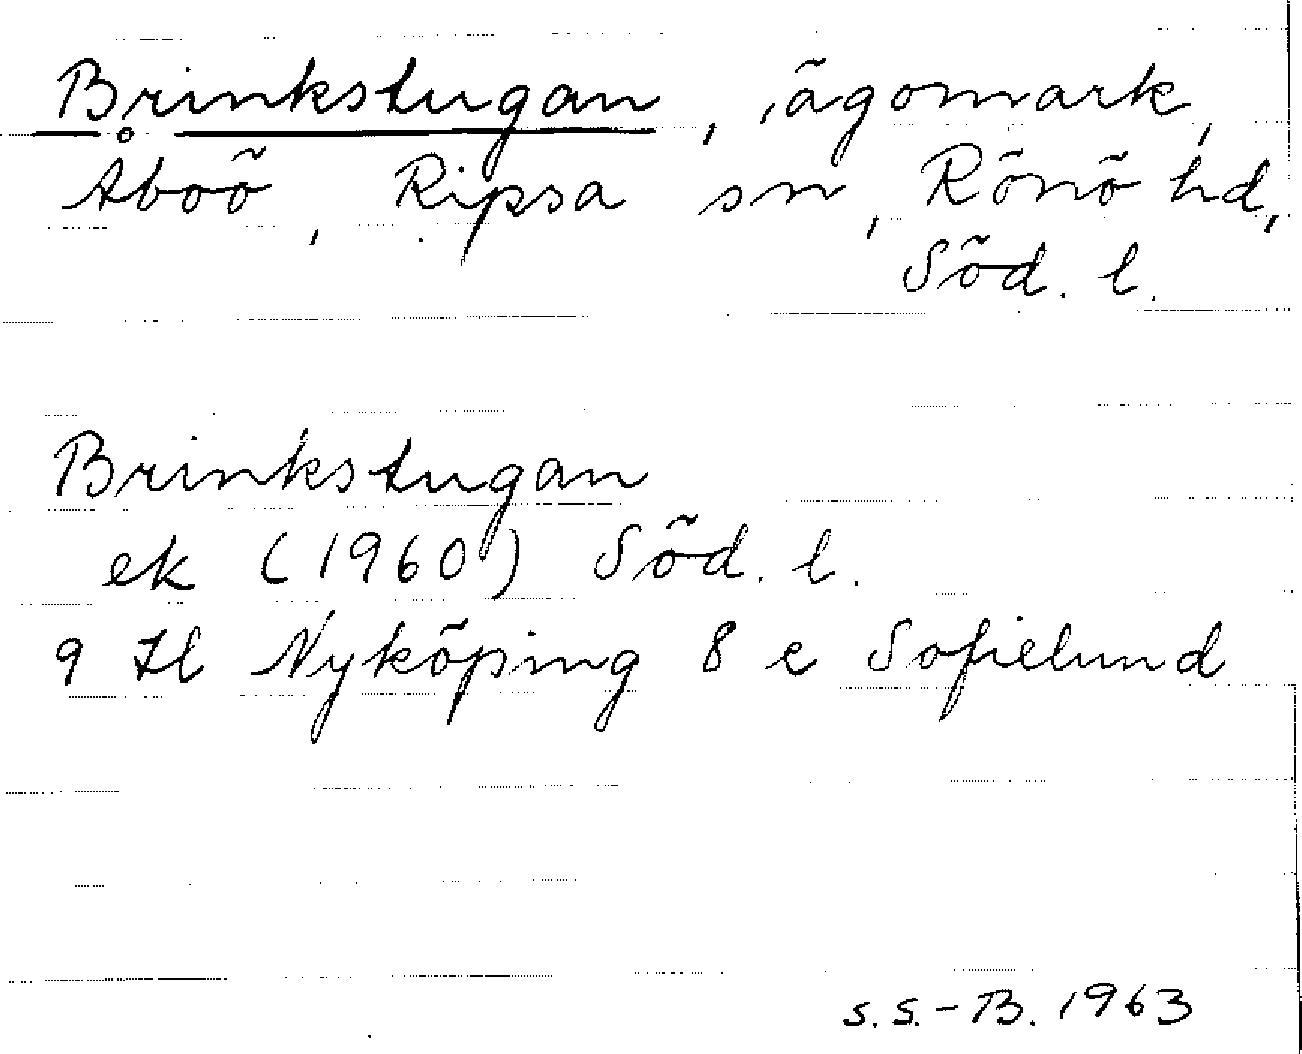 Brinkstugan, ägomark,
Åboö, Ripsa sn, Rönö hd,
Söd. l.
Brinkstugan
ek (1960) Söd. l.
9 H l Nyköping 8 e Sofielund
S.S.-B. 1963